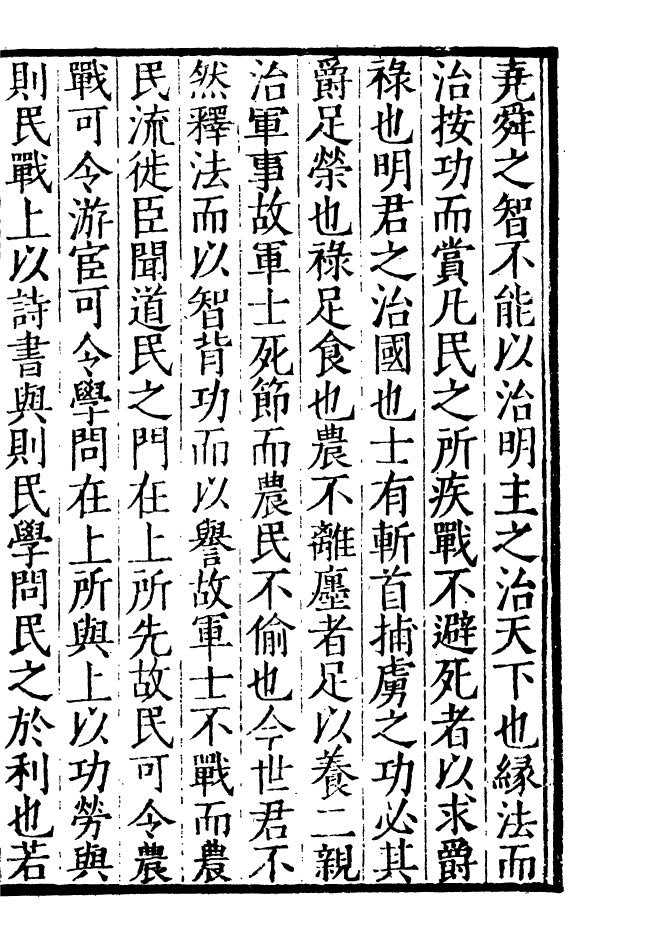 堯舜之智不能以治明主之治天下也緣法而
治按功而賞凡民之所疾戰不避死者以求爵
祿也明君之治國也士有斬首捕虜之功必其
爵足榮也祿足食也農不離廛者足以養二親
治軍事故軍士死節而農民不偷也今世君不
然釋法而以智背功而以譽故軍士不戰而農
民流徙臣聞道民之門在上所先故民可令農
戰可令游宦可令學問在上所與上以功勞與
則民戰上以詩書與則民學問民之於利也若